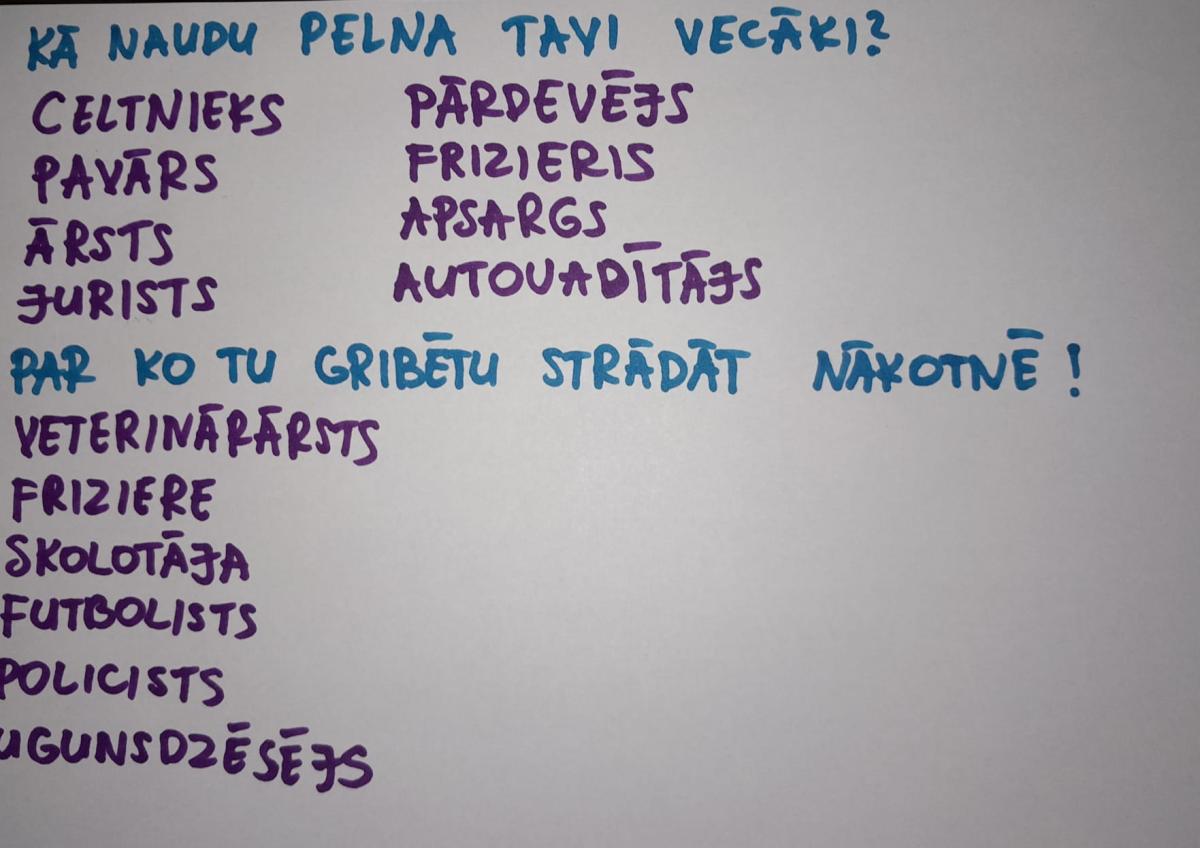 KĀ NAUDU PELNA TAVI VECĀKI?
CELTNIEKS
PAVĀRS
ĀRSTS
JURISTS
PĀRDEVĒJS
FRIZIERIS
APSARGS
AUTOVADĪTĀJS
PAR KO TU GRIBĒTU STRĀDĀT NĀKOTNĒ!
VETERINĀRĀRSTS
FRIZIERE
SKOLOTĀJA
FUTBOLISTS
POLICISTS
UGUNSDZĒSĒJS